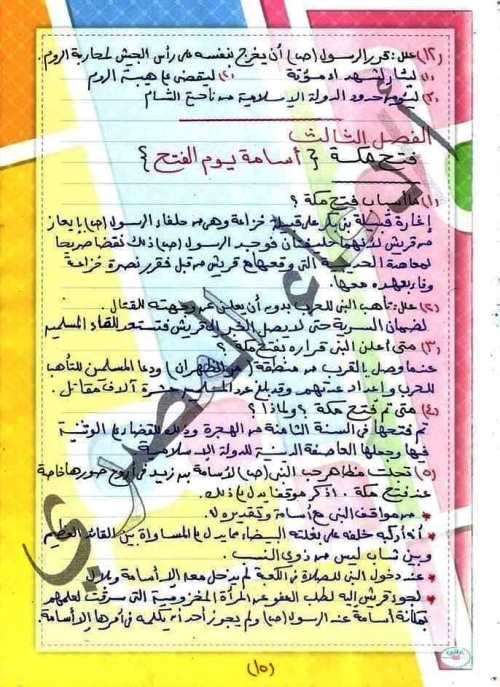 (١٢) علل: قرر الرسول (ص) أن يخرج بنفسه على رأس الجيش لمحاربة الروم.
(١) ليثأر لشهداء مؤتة (٢) ليقضى على هيبة الروم
(٣) ليؤمن حدود الدولة الإسلامية من ناحية الشام
الفصل الثالث
فتح مكة { أسامة يوم الفتح }
(١) ما أسباب فتح مكة ؟
إغارة قبيلة بنى بكر على قبيلة خزاعة وهى من حلفاء الرسول (ص) بإيعاز
من قريش لأنهما حليفتان فوجد الرسول (ص) ذلك نقضا صريحا
لمعاهدة الحديبية التى وقعها مع قريش من قبل فقرر نصرة خزاعة
وفاء بعهده معها.
(٢) علل: تأهب النبى للحرب بدون أن يعلن عن وجهته للقتال.
لضمان السرية حتى لا يصل الخبر إلى قريش فتستعد للقاء المسلمين
(٣) متى أعلن النبى قراره بفتح مكة ؟
عندما وصل بالقرب من منطقة (مر الظهران) ودعا المسلمين للتأهب
للحرب وإعداد عدتهم وقد بلغ عدد المسلمين عشرة آلاف مقاتل.
(٤) متى تم فتح مكة ؟ ولماذا ؟
تم فتحها فى السنة الثامنة من الهجرة وذلك للقضاء على الوثنية
فيها وجعلها العاصمة الدينية للدولة الإسلامية
(٥) تجلت مظاهر حب النبى (ص) لأسامة بن زيد فى أروع صورها خاصة
عند فتح مكة. اذكر موقفا يدل على ذلك.
* من مواقف النبى مع أسامة وتقديره له.
* أنه أركبه خلفه على بغلته البيضاء مما يدل على المساواة بين القائد العظيم
وبين شاب ليس من ذوى النسب.
* عند دخول النبى للصلاة فى الكعبة لم يدخل معه إلا أسامة وبلال
* لجوء قريش إليه لطلب العفو عن المرأة المخزومية التى سرقت لعلمهم
بمكانة أسامة عند الرسول (ص) ولم يجرؤ أحد أن يكلمه فى أمرها إلا أسامة.
(١٥)